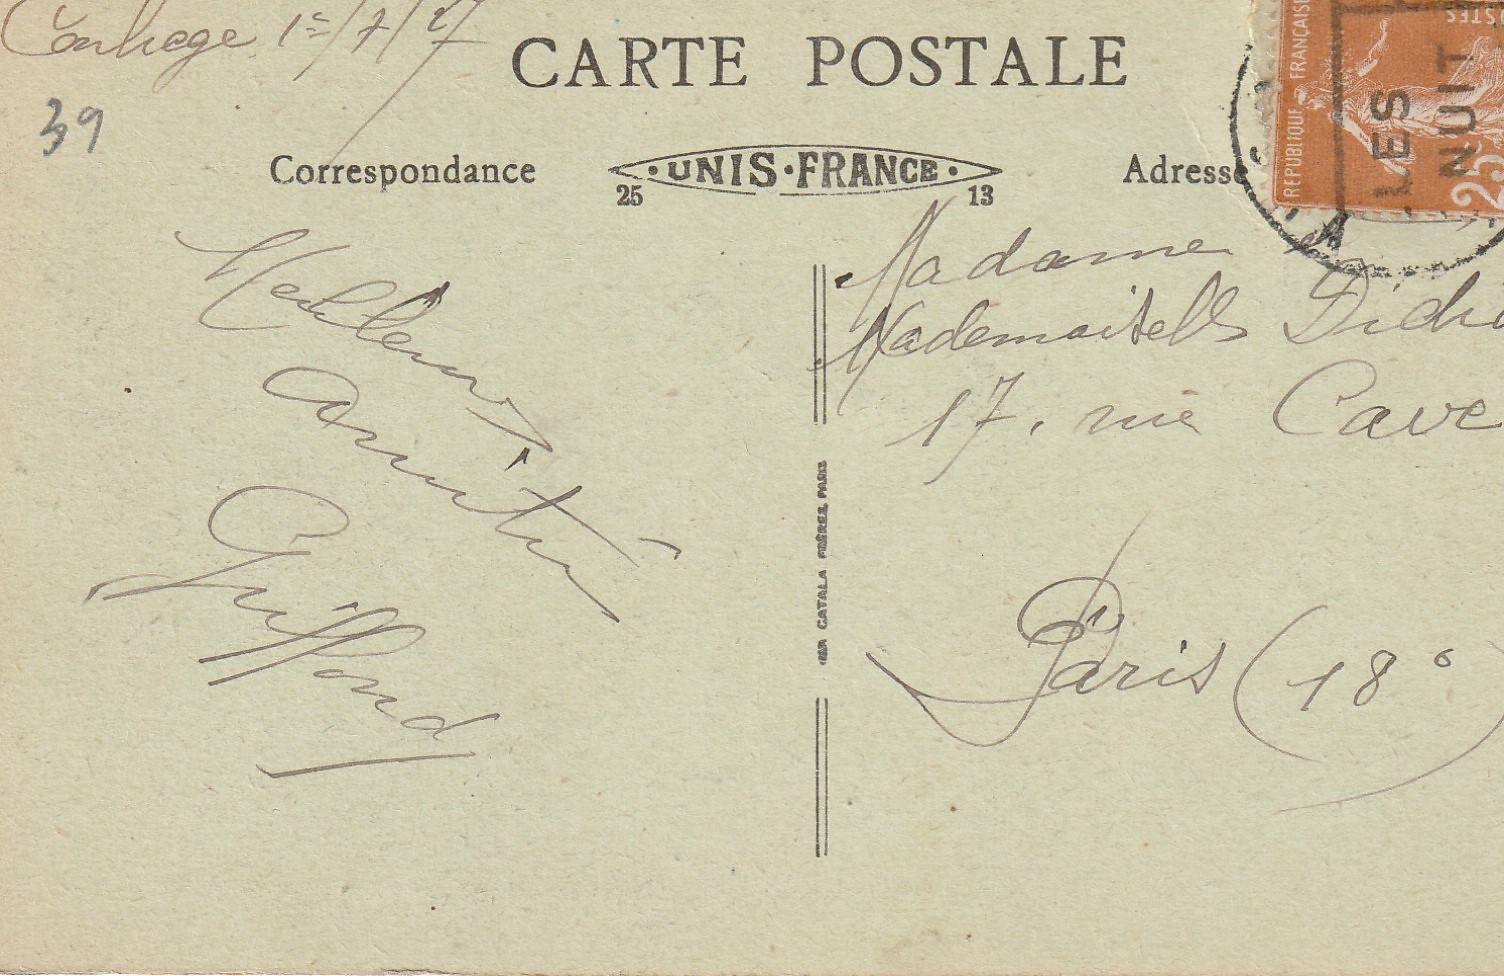 Conliege 1er/7/27
CARTE POSTALE
39
Correspondance
UNIS·FRANCE
25 13
Adresse
RÉPUBLIQUE FRANÇAISE
POSTES
25
LLES
NUIT
Meilleures
amitiés
Griffond
Madame et
Mademoiselle
17, rue Cavé
Paris (18°
IMP. CATALA FRÈRES, PARIS